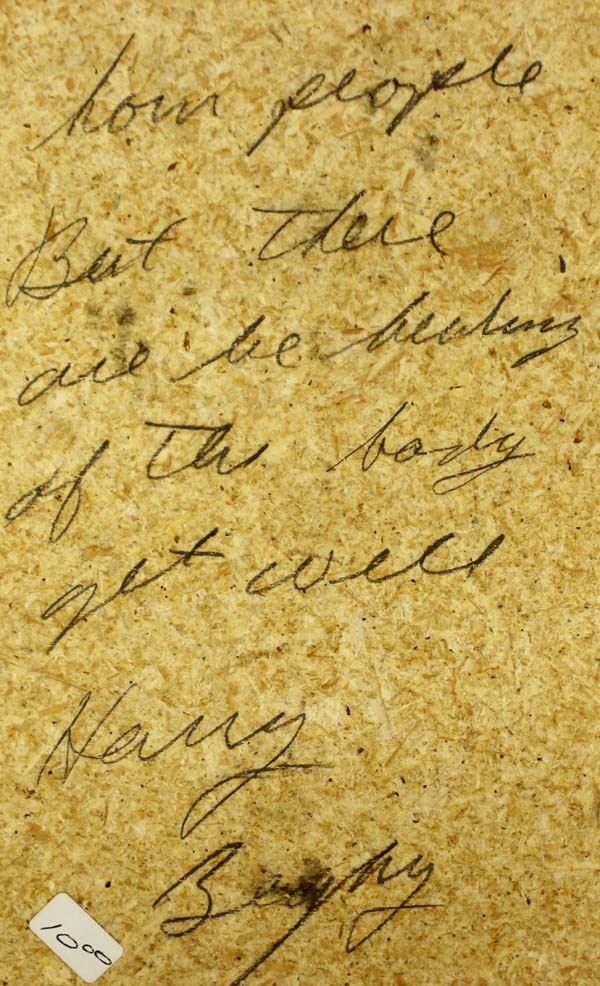 people
But there
are be healing
of the body
get well
Harry
1000